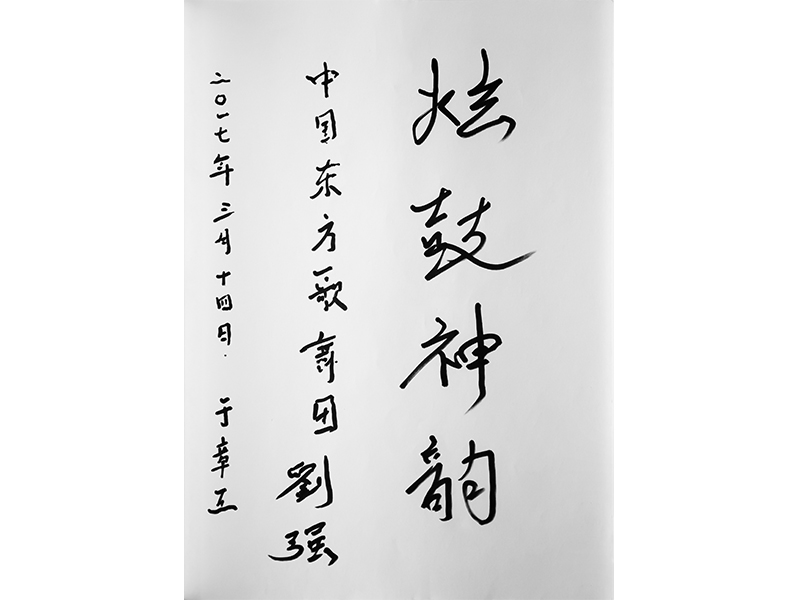 炫鼓神韵
中国东方歌舞团 劉强
二〇一七年三月十四日. 于章丘